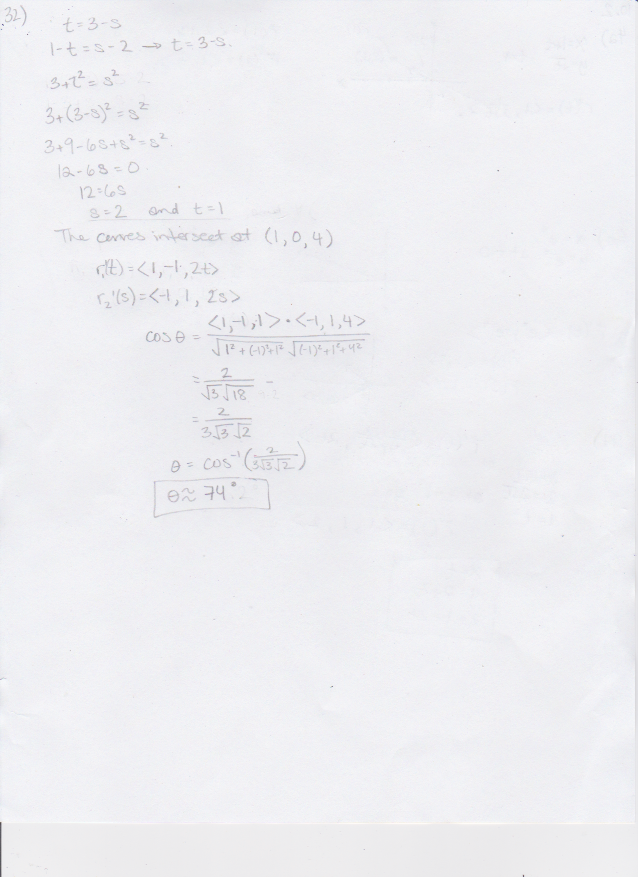 32)
t = 3-s
1-t = s-2 → t = 3-s.
3+t² = s²
3+(3-s)² = s²
3+9-6s+s² = s²
12-6s = 0
12 = 6s
s = 2 and t = 1
The curves intersect at (1, 0, 4)
r₁'(t) = <1, -1, 2t>
r₂'(s) = <-1, 1, 2s>
cos θ = <1, -1, 1> • <-1, 1, 4> / √1² + (-1)² + 1² √(-1)² + 1² + 4²
= 2 / √3 √18
= 2 / 3√3 √2
θ = cos⁻¹ (2 / 3√3 √2)
θ ≈ 74°